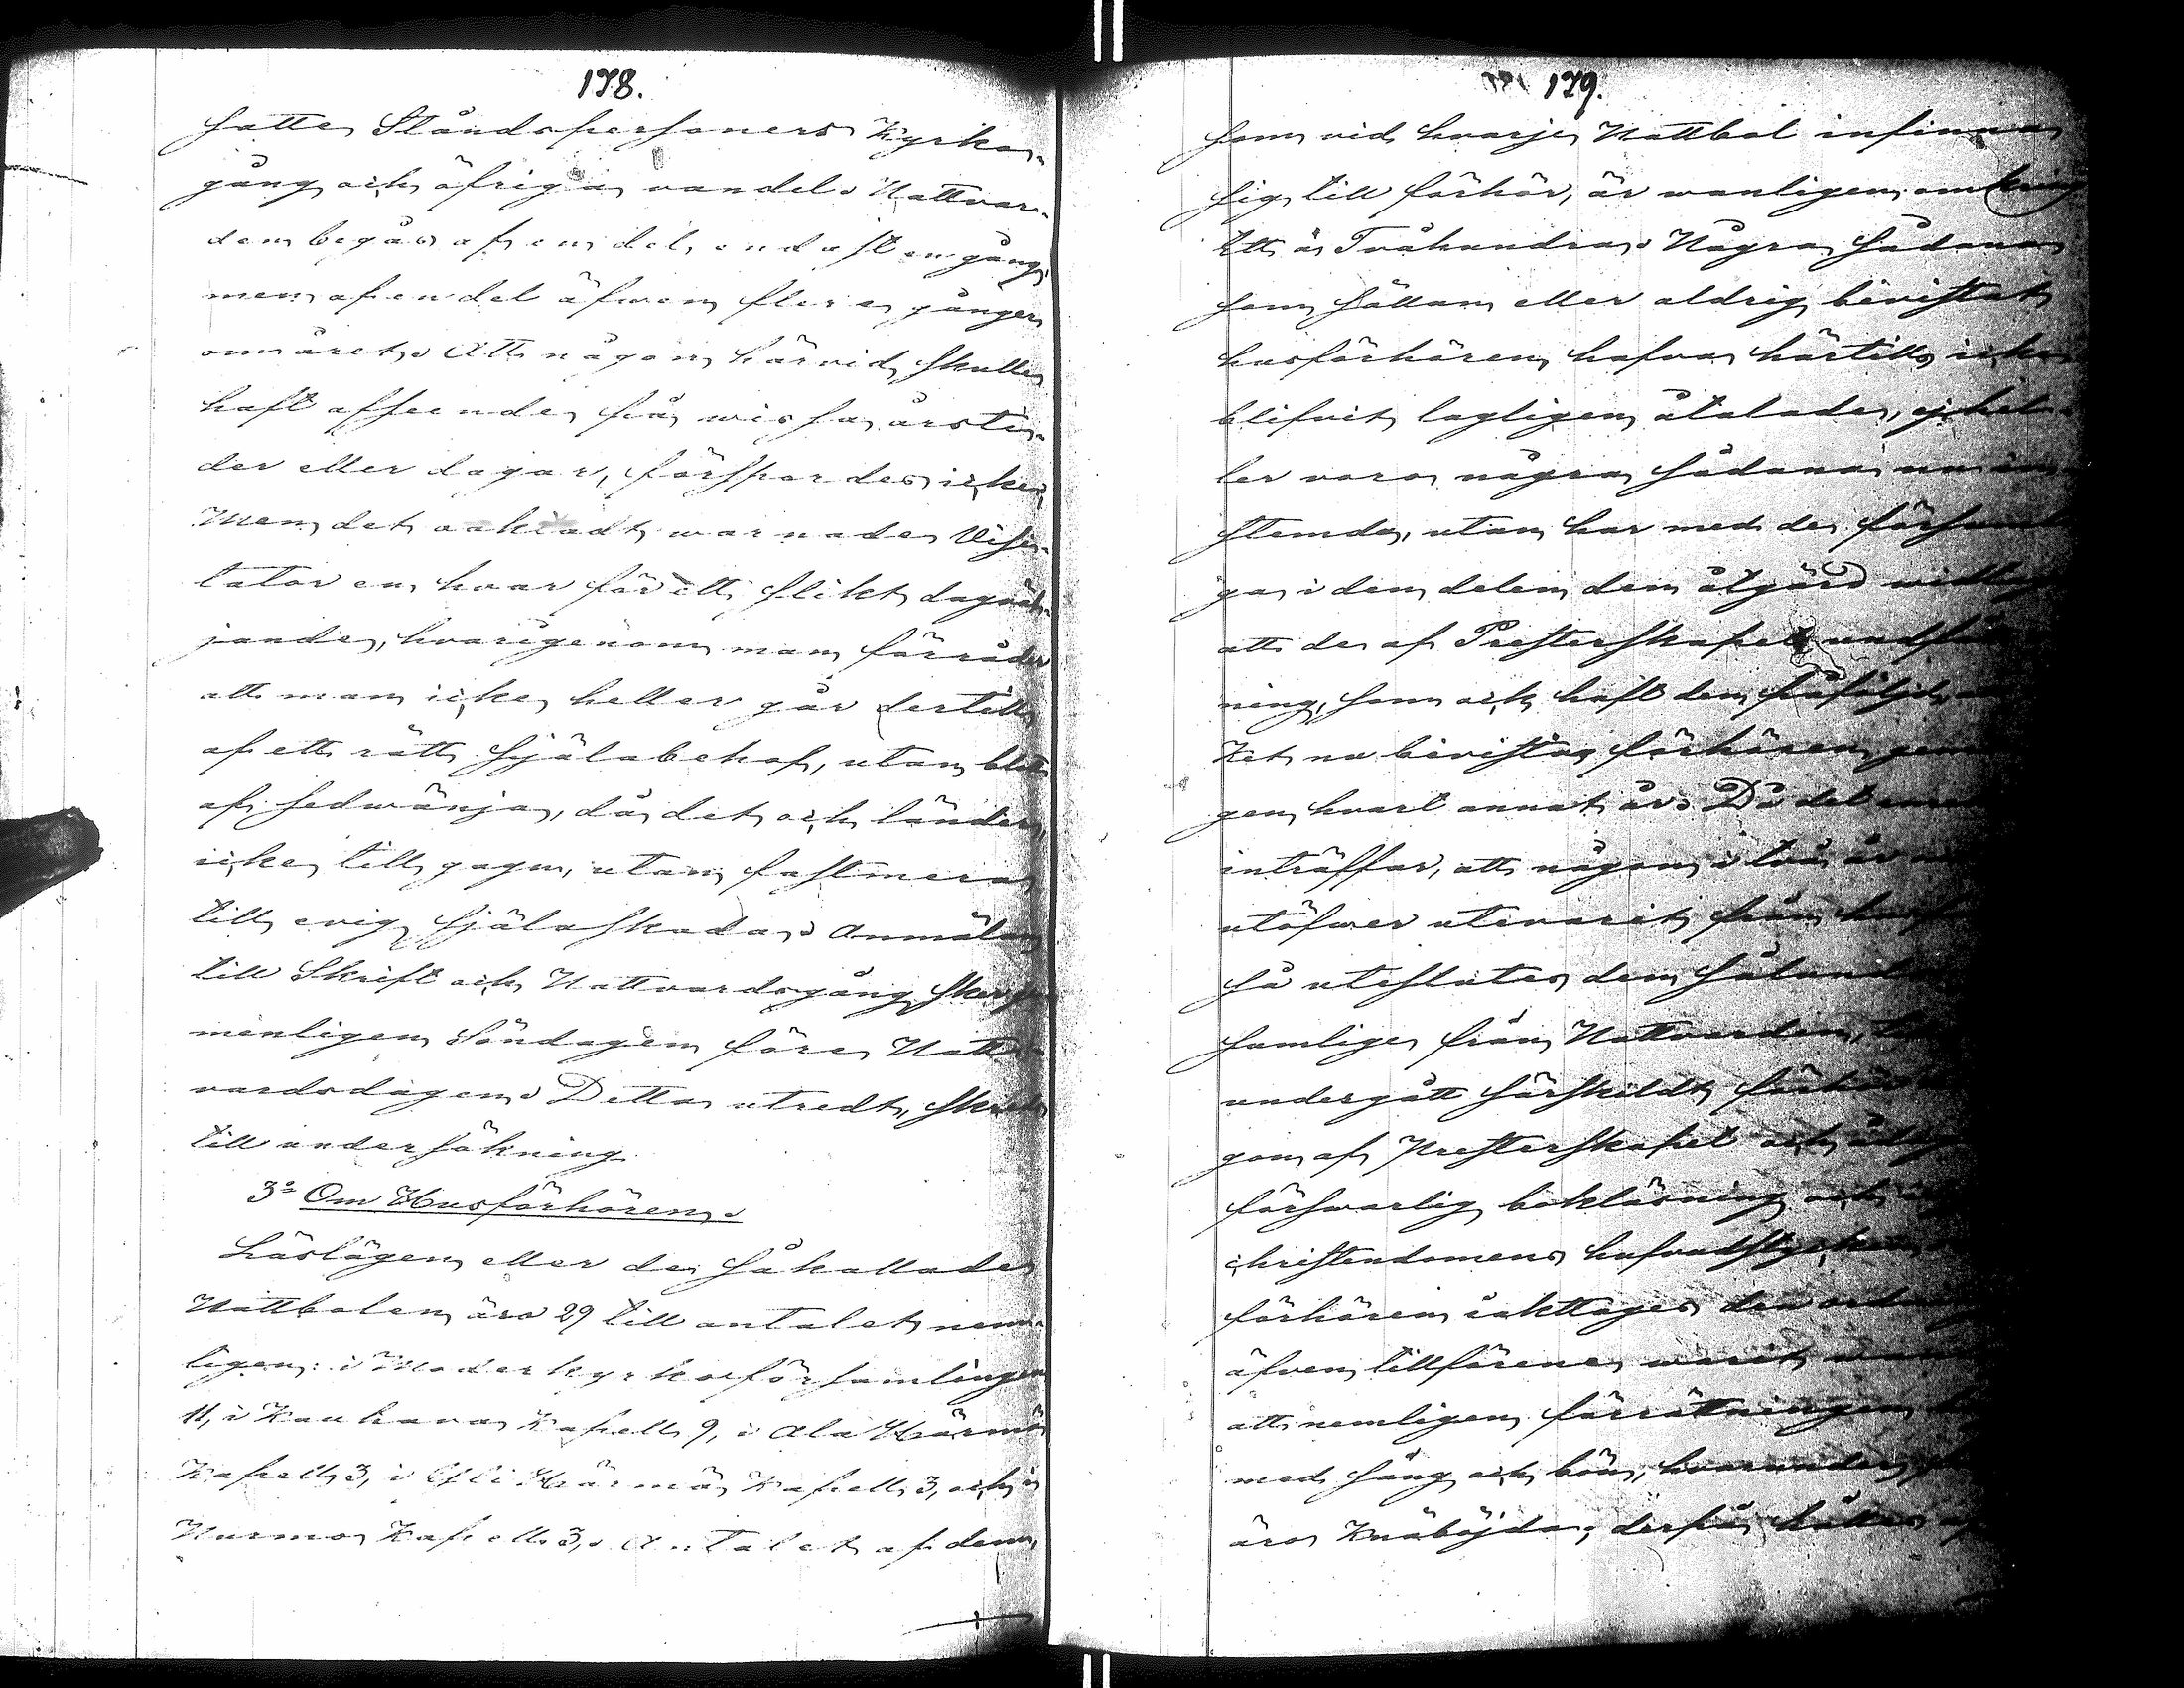 178.
satte Ståndspersoners Kyrko-
gång och öfriga vandel. Nattvar-
den begås af en del endast en gång,
men af en del äfwen flere gånger
om året. Att någon härvid skulle
haft afseende på wissa årsti-
der eller dagar, förspordes icke,
Men det oaktadt warnade Visi-
tator en hvar för ett slikt dagwäl-
jande, hvarigenom man förråder
att man icke heller går dertill
af ett rätt Själabehof, utan blott
af sedwänja, då det och länder
icke till gagn, utan fastmera
till evig Själaskada. Anmälan
till Skrift och Nattvardsgång sker
menligen Söndagen före Natt-
vardsdagen. Detta utredt, skreds
till undersökning
3º Om Husförhören.
Läslagen eller de så kallade
Nattbolen äro 29 till antalet nem-
ligen: i Moderkyrkoförsamlingen
11, i Kauhava Kapell 9, i Ala Härmä
Kapell 3, i Yli Härmä Kapell 3, och i
Nurmo Kapell 3. Antalet af dem,
179.
som vid hvarje Nattbol infinna
sig till förhör, är wanligen omkring
Ett à Tvåhundra. Några sådana
som sällan eller aldrig bevistat
husförhören hafva härtills icke
blifvit lagligen åtalade, ej hel-
ler voro några sådana nu in-
stemda, utan har med de
ga i den delen den åtgärd
att de af Presterskapet
ning, som ock haft den påföljd
ket nu bevistas förhören
gen hvart annat år. Då det
inträffar, att någon i två år
utöfwer utevarit från
så uteslutes den sålunda
samlige från Nattvarden,
undergått särskildt förhör
gon af Presterskapet och
försvarlig bokläsning och
christendomens hufvudstycken
förhören iakttages den
äfven tillförene warit
att nemligen förrättningen
med sång och bön, hvarunder
äro Knäböjda; derpå hålles